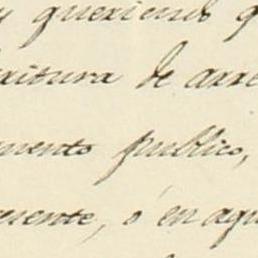 y queriendo q
critura de arre
mento publico,
mente, ó en agu